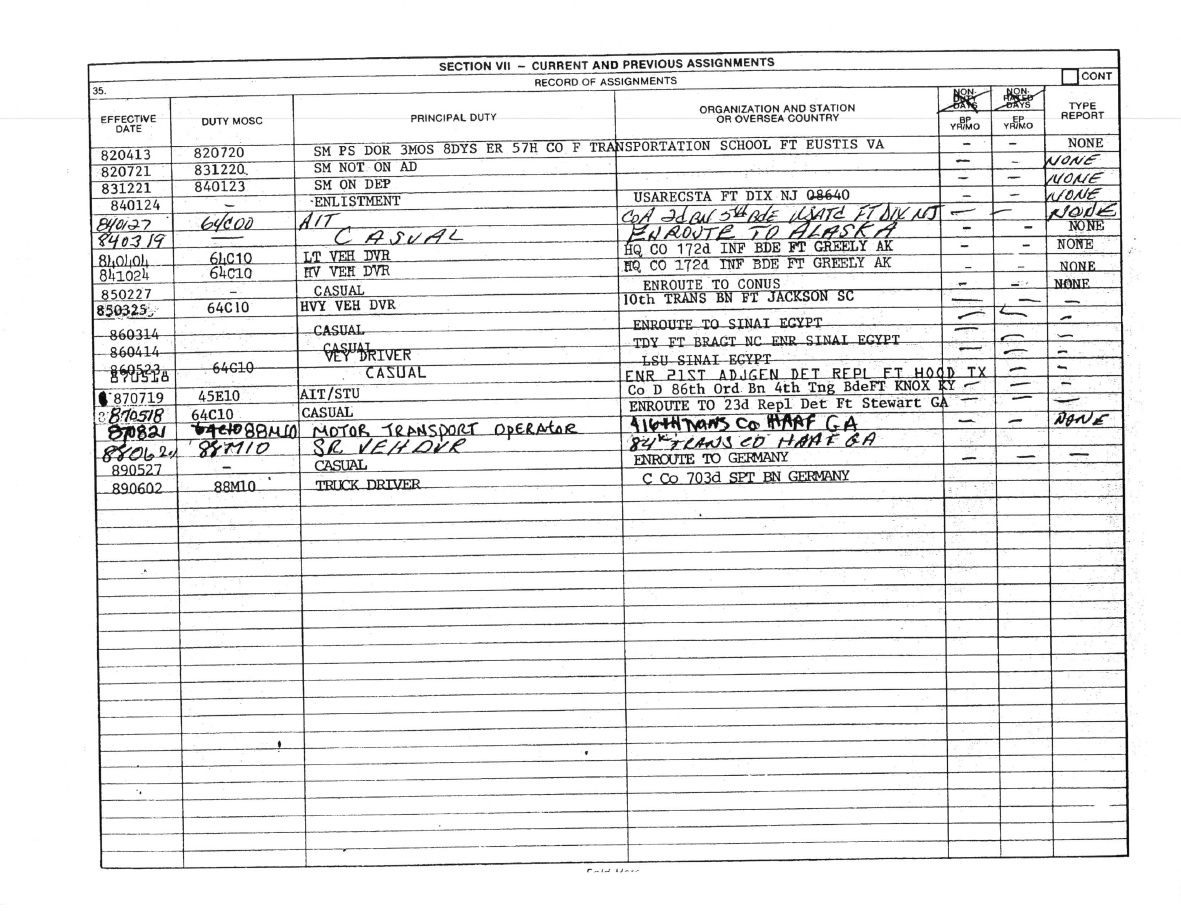 SECTION VII – CURRENT AND PREVIOUS ASSIGNMENTS
35. RECORD OF ASSIGNMENTS CONT
EFFECTIVE DATE DUTY MOSC PRINCIPAL DUTY ORGANIZATION AND STATION OR OVERSEA COUNTRY NON-DUTY DAYS BP YR/MO NON-RATED DAYS EP YR/MO TYPE REPORT
820413 820720 SM PS DOR 3MOS 8DYS ER 57H CO F TRANSPORTATION SCHOOL FT EUSTIS VA – – NONE
820721 831220 SM NOT ON AD – – NONE
831221 840123 SM ON DEP – – NONE
840124 – ENLISTMENT USARECSTA FT DIX NJ 08640 – – NONE
840127 64C00 AIT Co A 2d BN 5th Bde USATC FT DIX NJ – – NONE
840319 – CASUAL ENROUTE TO ALASKA – – NONE
840404 64C10 LT VEH DVR HQ CO 172d INF BDE FT GREELY AK – – NONE
841024 64C10 HV VEH DVR HQ CO 172d INF BDE FT GREELY AK – – NONE
850227 – CASUAL ENROUTE TO CONUS – – NONE
850325 64C10 HVY VEH DVR 10th TRANS BN FT JACKSON SC – – –
860314 CASUAL ENROUTE TO SINAI EGYPT – –
860414 CASUAL TDY FT BRAGT NC ENR SINAI EGYPT – – –
860523 64C10 VEY DRIVER LSU SINAI EGYPT – – –
870518 CASUAL ENR 21ST ADJGEN DET REPL FT HOOD TX – –
870719 45E10 AIT/STU Co D 86th Ord Bn 4th Tng BdeFT KNOX KY – – –
870518 64C10 CASUAL ENROUTE TO 23d Repl Det Ft Stewart GA – – –
870821 64C10 88M10 MOTOR TRANSPORT OPERATOR 416TH TRANS CO HAAF GA – – NONE
880624 88M10 SR VEH DVR 84th TRANS CO HAAF GA
890527 – CASUAL ENROUTE TO GERMANY – – –
890602 88M10 TRUCK DRIVER C Co 703d SPT BN GERMANY